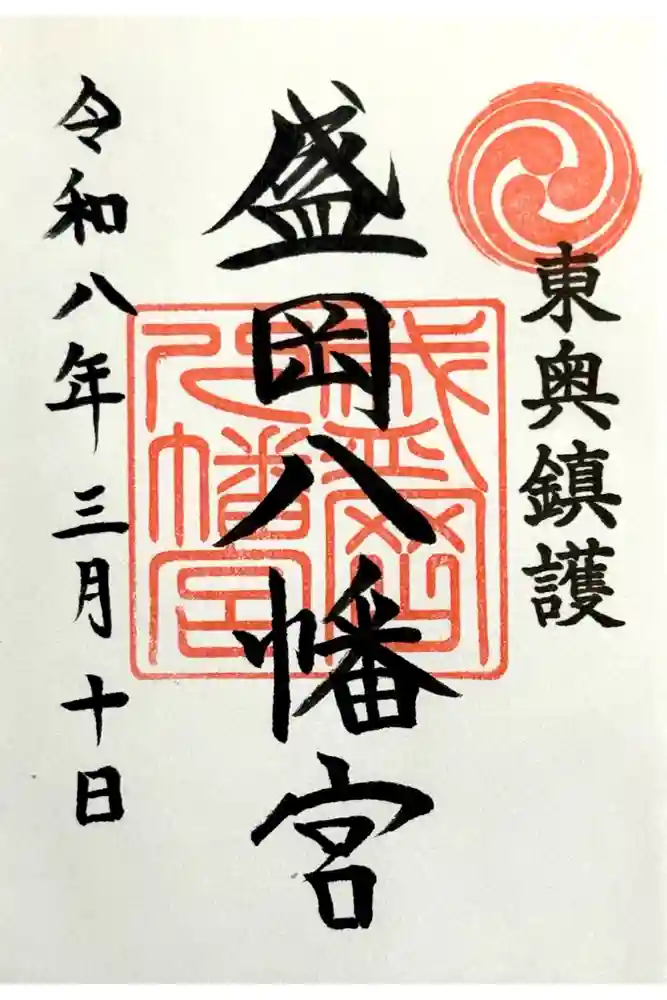 東奥鎮護
盛岡八幡宮
令和八年三月十日
盛岡八幡宮